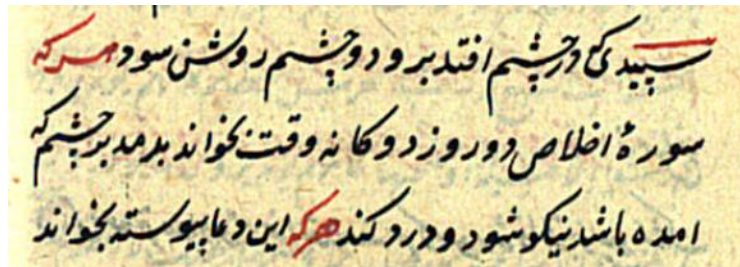 سپیدی که در چشم افتد برود و چشم روشن سود هر که
سورهٔ اخلاص دو روز دوکانه وقت بخواند بدمد بر چشم که
امده باشد نیکو شود و درد کند هر که این دعا پیوسته بخواند